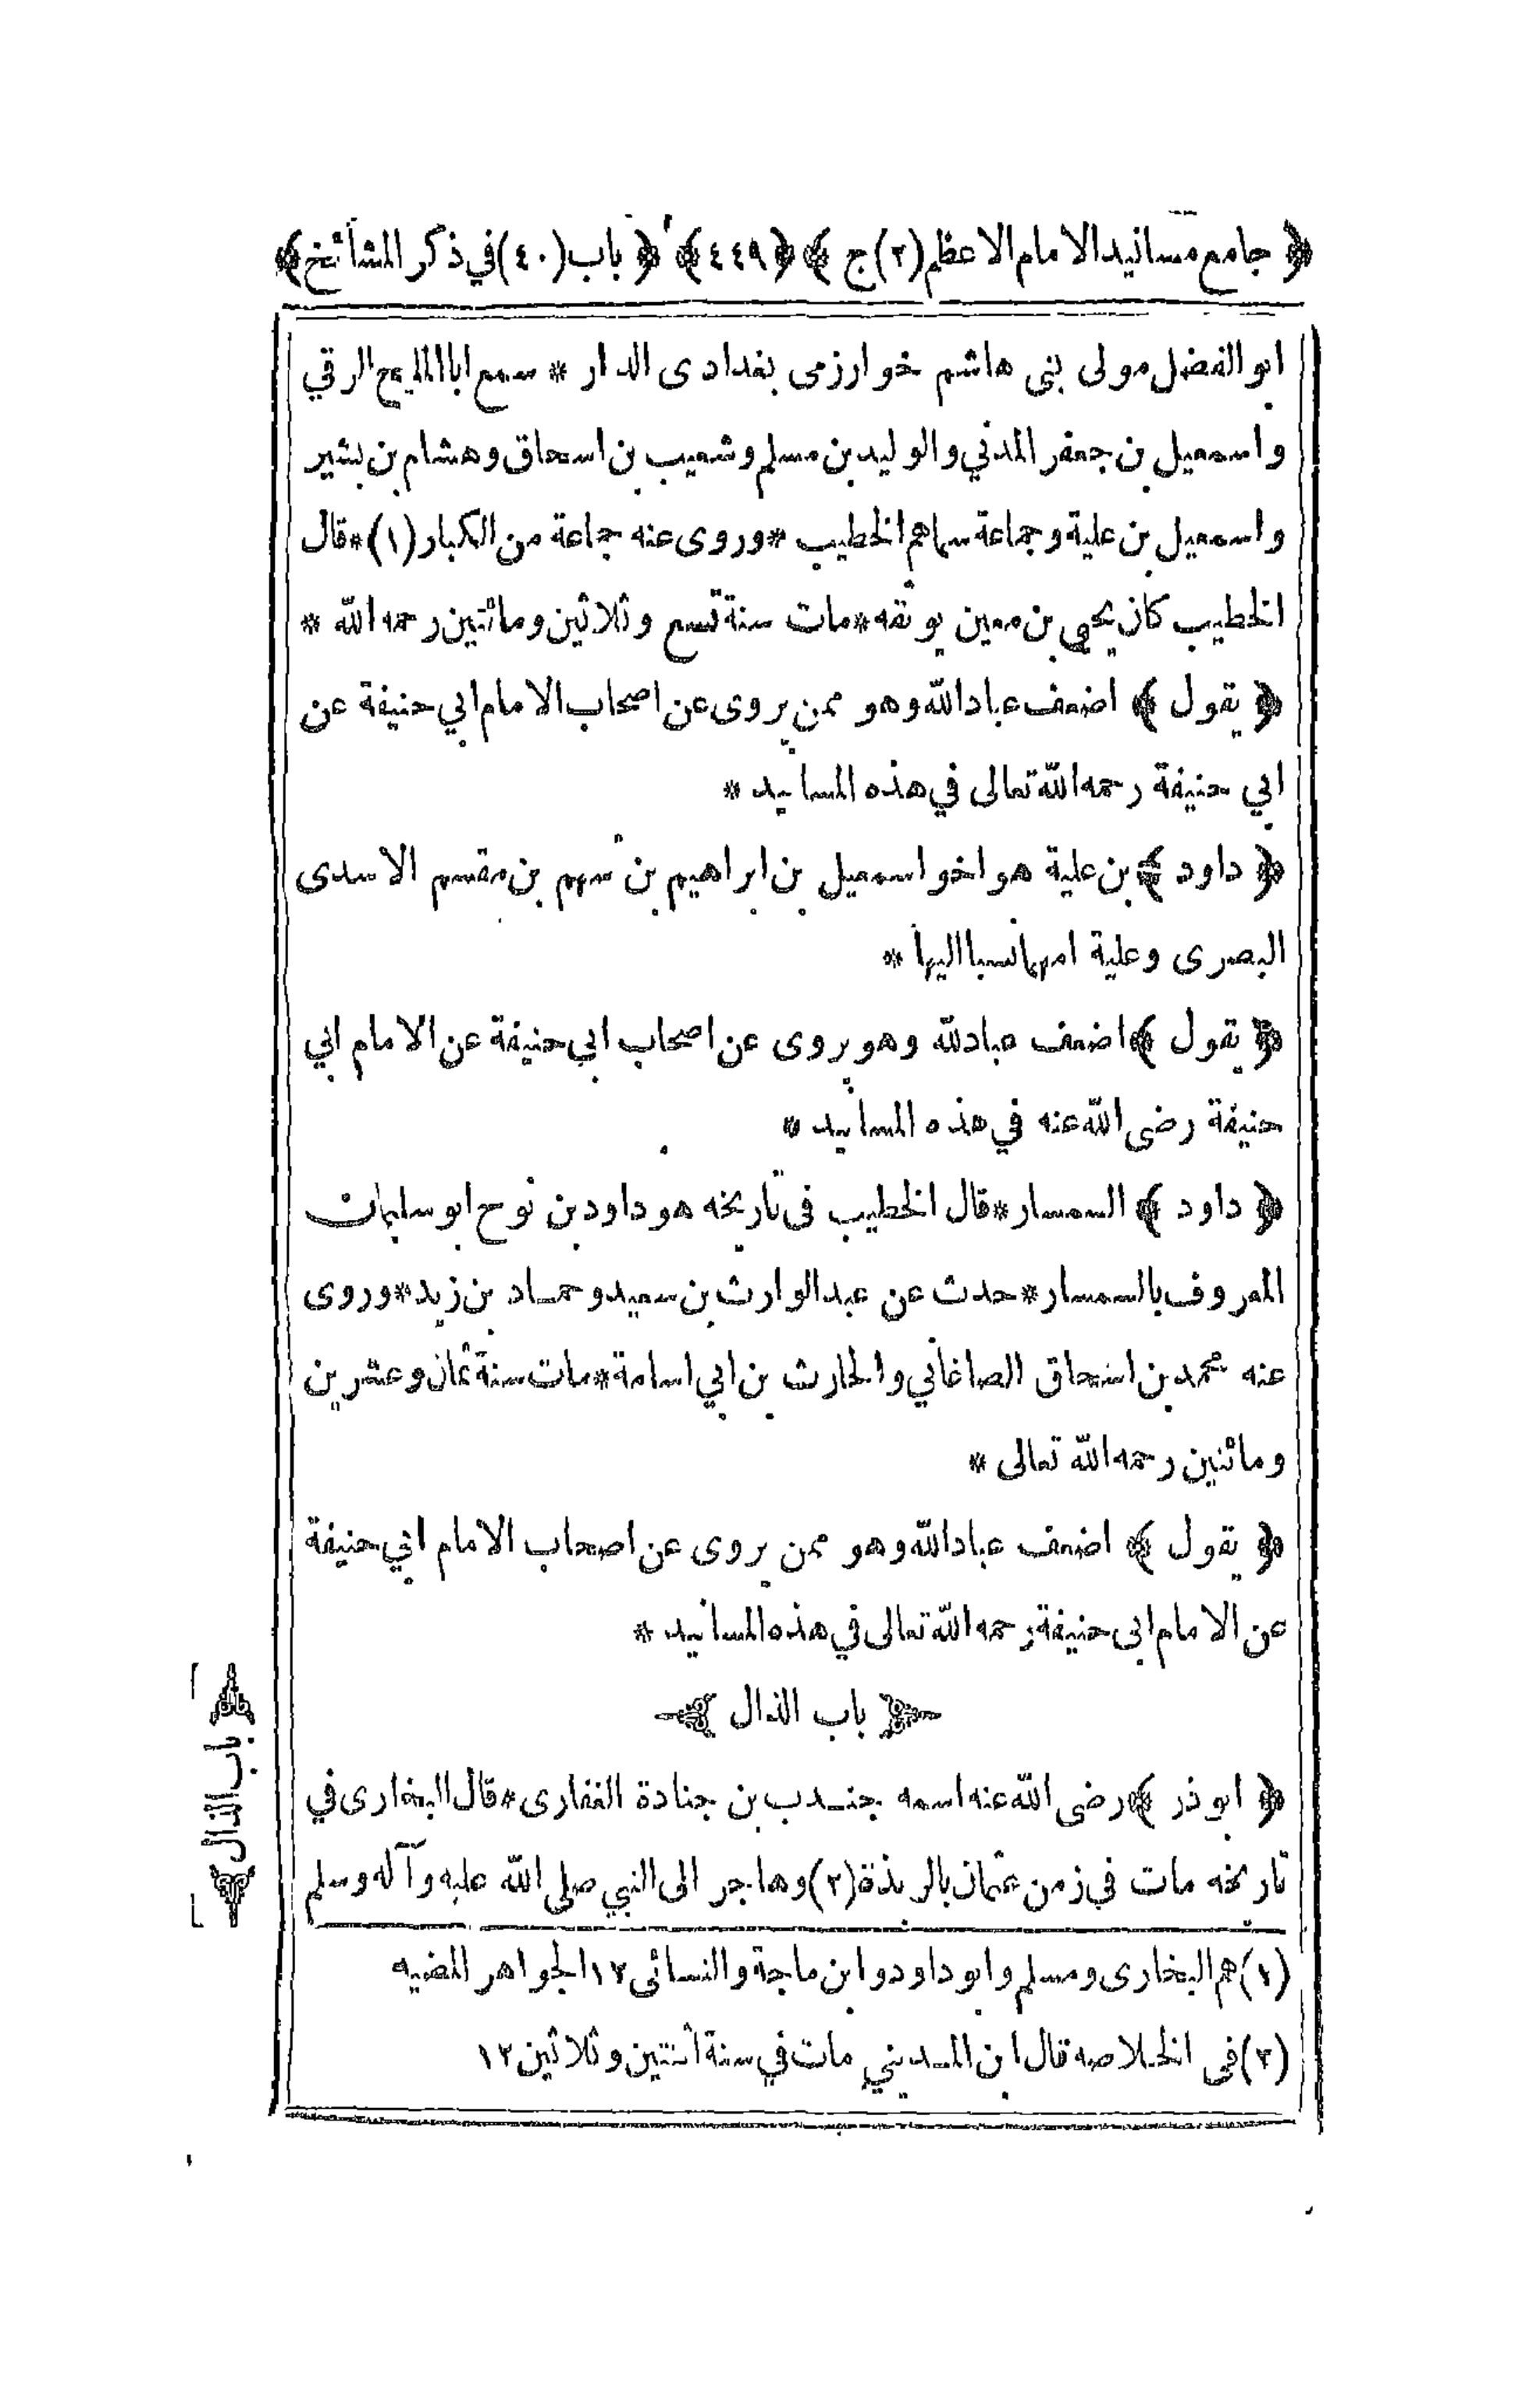 ﴿ جامع مسانيد الامام الاعظم (٢) ج ﴾ ﴿٤٤٩﴾ ﴿ باب (٤٠) في ذكر المشائخ ﴾
ابو الفضل مولى بنى هاشم خوارزمى بغدادى الدار * سمع ابا المليح الرقي
واسمعيل بن جعفر المدني والوليد بن مسلم وشعيب بن اسحاق وهشام بن بشير
واسمعيل بن علية وجماعة سماهم الخطيب * وروى عنه جماعة من الكبار (١) * قال
الخطيب كان يحيى بن معين يوثقه * مات سنة تسع وثلاثين ومائتين رحمه الله *
﴿ يقول ﴾ اضعف عباد الله وهو ممن يروى عن اصحاب الامام ابي حنيفة عن
ابي حنيفة رحمه الله تعالى في هذه المسانيد *
﴿ داود ﴾ بن علية هو اخو اسمعيل بن ابراهيم بن سهم بن مقسم الاسدى
البصرى وعلية امهما نسبا اليها *
﴿ يقول ﴾ اضعف عبادلله وهو يروى عن اصحاب ابي حنيفة عن الامام ابي
حنيفة رضى الله عنه في هذه المسانيد *
﴿ داود ﴾ السمسار * قال الخطيب فى تاريخه هو داود بن نوح ابو سليمان
المعروف بالسمسار * حدث عن عبد الوارث بن سعيد وحماد بن زيد * وروى
عنه محمد بن اسحاق الصاغاني والحارث بن ابي اسامة * مات سنة ثمان وعشرين
ومائتين رحمه الله تعالى *
﴿ يقول ﴾ اضعف عباد الله وهو ممن يروى عن اصحاب الامام ابي حنيفة
عن الامام ابى حنيفة رحمه الله تعالى في هذه المسانيد *
﴿ باب الذال ﴾
﴿ باب الذال ﴾
﴿ ابو ذر ﴾ رضى الله عنه اسمه جندب بن جنادة الغفارى * قال البخارى في
تاريخه مات في زمن عثمان بالربذة (٢) وهاجر الى النبي صلى الله عليه وآله وسلم
(١) هم البخارى ومسلم وابو داود وابن ماجة والنسائى ١٢ الجواهر المضيه
(٢) فى الخلاصه قال ابن المديني مات في سنة اثنتين وثلاثين ١٢